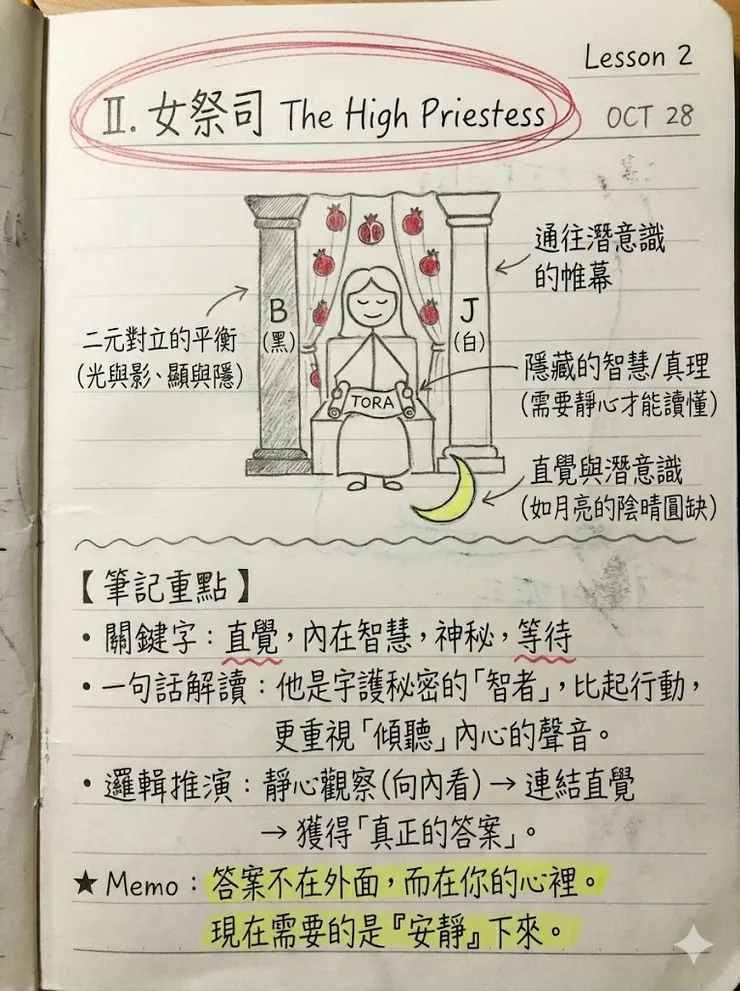 Lesson 2
Ⅱ. 女祭司 The High Priestess
OCT 28
通往潛意識
的帷幕
B
(黑)
J
(白)
二元對立的平衡
(光與影、顯與隱)
隱藏的智慧/真理
(需要靜心才能讀懂)
TORA
直覺與潛意識
(如月亮的陰晴圓缺)
【筆記重點】
・關鍵字：直覺，內在智慧，神秘，等待
・一句話解讀：他是守護秘密的「智者」，比起行動，
更重視「傾聽」內心的聲音。
・邏輯推演：靜心觀察(向內看) → 連結直覺
→ 獲得「真正的答案」。
★ Memo：答案不在外面，而在你的心裡。
現在需要的是『安靜』下來。